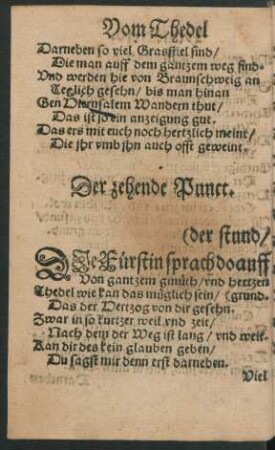 Vom Thedel
Darneben so viel Grasstiel sind/
Die man auff dem gantzem weg find.
Vnd werden hie von Braunschweig an
Teglich gesehn/ bis man hinan
Gen Iherusalem Wandern thut/
Das ist ja ein anzeigung gut.
Das ers mit euch noch hertzlich meint/
Die jhr vmb jhn auch offt geweint.
Der zehende Punct.
(der stund/
DIe Fürstin sprach do auff
Von gantzem gmüth/ vnd hertzen
Thedel wie kan das müglich sein/ (grund.
Das der Hertzog von dir gesehn.
Zwar in so kurtzer weil vnd zeit/
Nach dem der Weg ist lang/ vnd weit.
Kan dir des kein glauben geben/
Du sagst mir denn erst darneben.
Viel